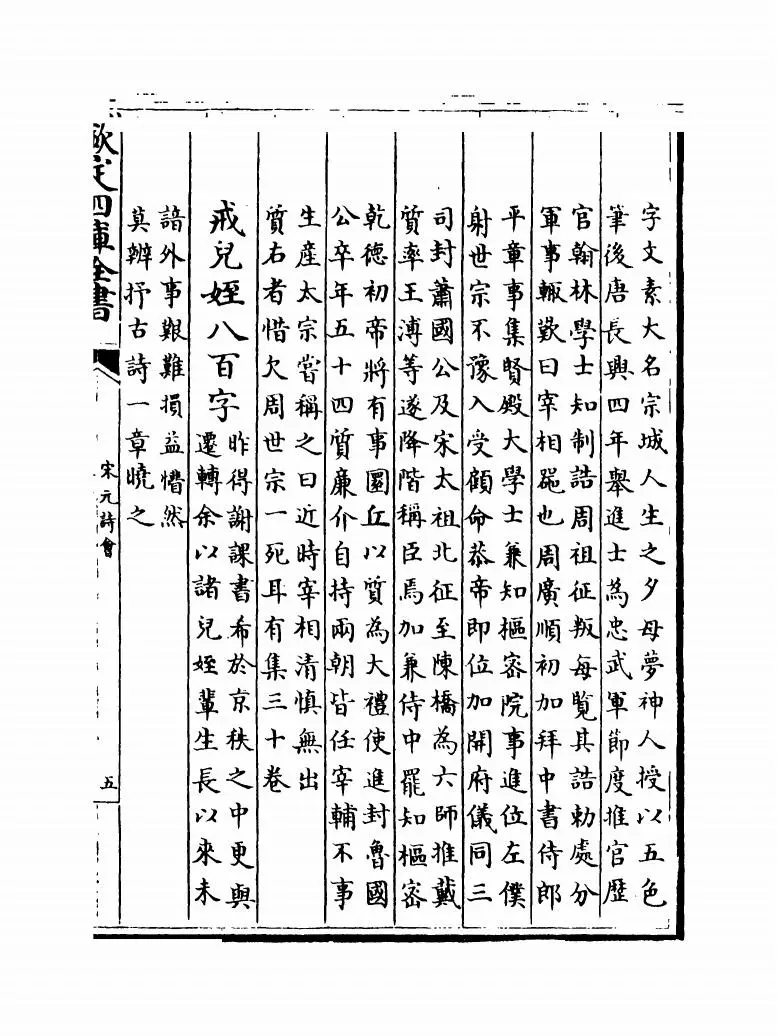 字文素大名宗城人生之夕母夢神人授以五色
筆後唐長興四年舉進士為忠武軍節度推官歷
官翰林學士知制誥周祖征叛每覧其誥勅處分
軍事輙歎曰宰相噐也周廣順初加拜中書侍郎
平章事集賢殿大學士兼知樞密院事進位左僕
射世宗不豫入受顧命恭帝即位加開府儀同三
司封蕭國公及宋太祖北征至陳橋為六師推戴
質率王溥等遂降階稱臣焉加兼侍中罷知樞密
乾德初帝將有事圜丘以質為大禮使進封魯國
公卒年五十四質廉介自持兩朝皆任宰輔不事
生産太宗嘗稱之曰近時宰相清慎無出
質右者惜欠周世宗一死耳有集三十卷
戒兒姪八百字
昨得謝課書希於京秩之中更與
遷轉余以諸兒姪輩生長以來未
諳外事艱難損益懵然
莫辨抒古詩一章曉之
欽定四庫全書
宋元詩會
五